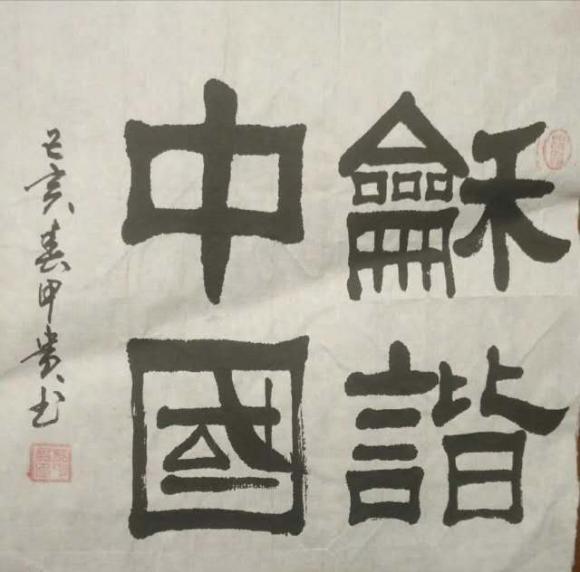 龢諧
中國
己亥春甲贵书